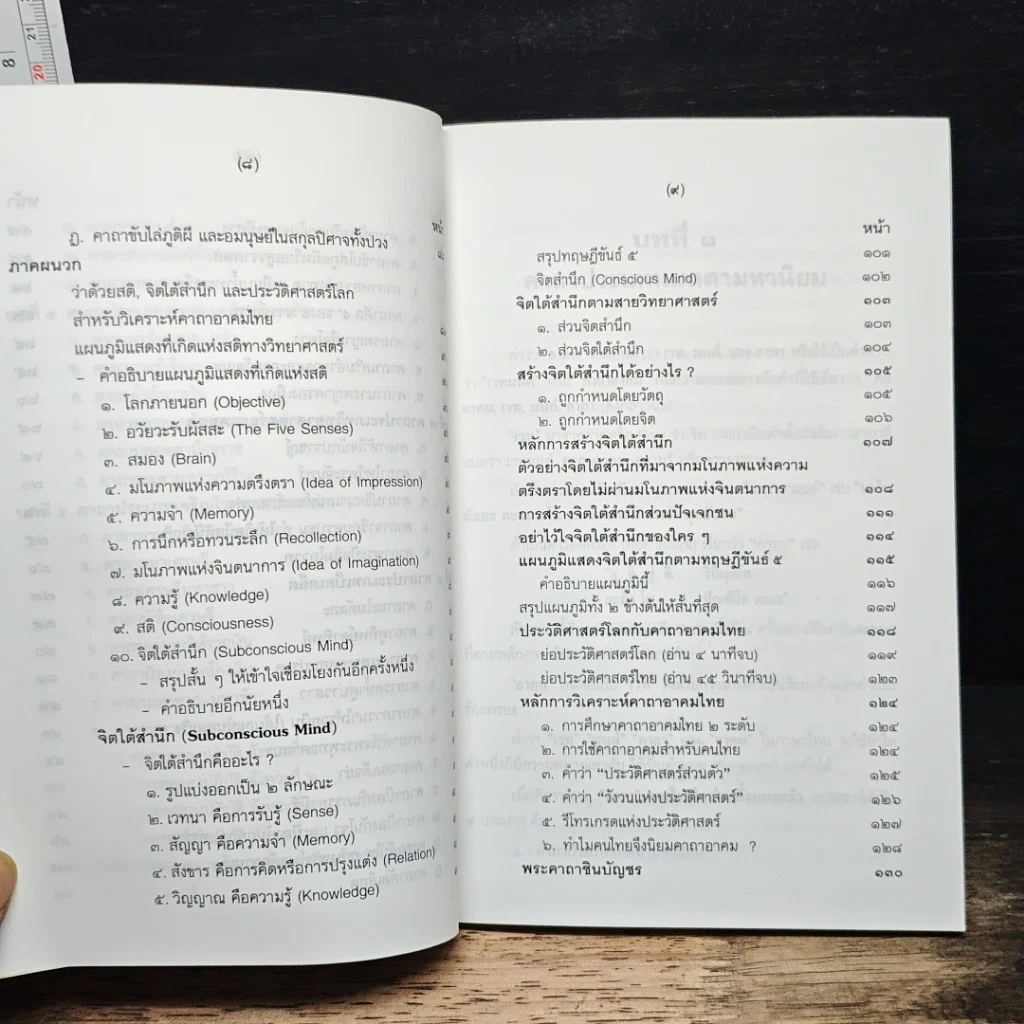 8
21
20
(๘)
ฏ. คาถาขับไล่ภูติผี และอมนุษย์ในสกุลปิศาจทั้งปวง
ภาคผนวก
ว่าด้วยสติ, จิตใต้สำนึก และประวัติศาสตร์โลก
สำหรับวิเคราะห์คาถาอาคมไทย
แผนภูมิแสดงที่เกิดแห่งสติทางวิทยาศาสตร์
– คำอธิบายแผนภูมิแสดงที่เกิดแห่งสติ
๑. โลกภายนอก (Objective)
๒. อวัยวะรับผัสสะ (The Five Senses)
๓. สมอง (Brain)
๔. มโนภาพแห่งความตรึงตรา (Idea of Impression)
๕. ความจำ (Memory)
๖. การนึกหรือทวนระลึก (Recollection)
๗. มโนภาพแห่งจินตนาการ (Idea of Imagination)
๘. ความรู้ (Knowledge)
๙. สติ (Consciousness)
๑๐. จิตใต้สำนึก (Subconscious Mind)
– สรุปสั้น ๆ ให้เข้าใจเชื่อมโยงกันอีกครั้งหนึ่ง
– คำอธิบายอีกนัยหนึ่ง
จิตใต้สำนึก (Subconscious Mind)
– จิตใต้สำนึกคืออะไร ?
๑. รูปแบ่งออกเป็น ๒ ลักษณะ
๒. เวทนา คือการรับรู้ (Sense)
๓. สัญญา คือความจำ (Memory)
๔. สังขาร คือการคิดหรือการปรุงแต่ง (Relation)
๕. วิญญาณ คือความรู้ (Knowledge)
(๙)
หน้า
สรุปทฤษฎีขันธ์ ๕ ๑๐๑
จิตสำนึก (Conscious Mind) ๑๐๒
จิตใต้สำนึกตามสายวิทยาศาสตร์ ๑๐๓
๑. ส่วนจิตสำนึก ๑๐๓
๒. ส่วนจิตใต้สำนึก ๑๐๔
สร้างจิตใต้สำนึกได้อย่างไร ? ๑๐๕
๑. ถูกกำหนดโดยวัตถุ ๑๐๕
๒. ถูกกำหนดโดยจิต ๑๐๖
หลักการสร้างจิตใต้สำนึก ๑๐๗
ตัวอย่างจิตใต้สำนึกที่มาจากมโนภาพแห่งความ
ตรึงตราโดยไม่ผ่านมโนภาพแห่งจินตนาการ ๑๐๘
การสร้างจิตใต้สำนึกส่วนปัจเจกชน ๑๑๑
อย่าไว้ใจจิตใต้สำนึกของใคร ๆ ๑๑๔
แผนภูมิแสดงจิตใต้สำนึกตามทฤษฎีขันธ์ ๕ ๑๑๕
คำอธิบายแผนภูมินี้ ๑๑๖
สรุปแผนภูมิทั้ง ๒ ข้างต้นให้สั้นที่สุด ๑๑๗
ประวัติศาสตร์โลกกับคาถาอาคมไทย ๑๑๘
ย่อประวัติศาสตร์โลก (อ่าน ๔ นาทีจบ) ๑๑๙
ย่อประวัติศาสตร์ไทย (อ่าน ๔๕ วินาทีจบ) ๑๒๓
หลักการวิเคราะห์คาถาอาคมไทย ๑๒๔
๑. การศึกษาคาถาอาคมไทย ๒ ระดับ ๑๒๔
๒. การใช้คาถาอาคมสำหรับคนไทย ๑๒๔
๓. คำว่า “ประวัติศาสตร์ส่วนตัว” ๑๒๕
๔. คำว่า “วังวนแห่งประวัติศาสตร์” ๑๒๖
๕. รีโทรเกรดแห่งประวัติศาสตร์ ๑๒๗
๖. ทำไมคนไทยจึงนิยมคาถาอาคม ? ๑๒๘
พระคาถาชินบัญชร ๑๓๐